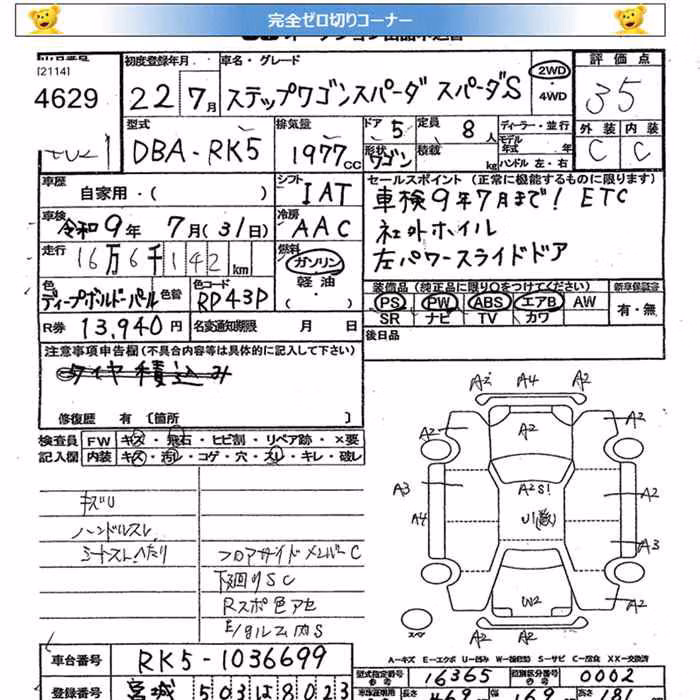 完全ゼロ切りコーナー
[2114]
4629
初度登録年月
22 7月
車名・グレード
ステップワゴンスパーダ スパーダS
2WD
4WD
評価点
35
外装 内装
C C
型式
DBA-RK5
排気量
1977cc
ドア 5
形状 ワゴン
定員 8人
積載 kg
ディーラー・並行
モデル年式 年
ハンドル 左・右
車歴
自家用・( )
シフト IAT
車検
令和9年 7月(31日)
冷房 AAC
走行
16万6千142km
燃料
ガソリン
軽油
・( )・
色
ディープボルドーパール
色替
色コード
RP43P
R券 13,940円
名変通知期限 月 日
セールスポイント(正常に機能するものに限ります)
車検9年7月まで! ETC
社外ホイル
左パワースライドドア
装備品(純正品に限り○をつけてください)
PS PW ABS エアB AW
SR ナビ TV カワ
新車保証書
有・無
後日品
注意事項申告欄(不具合内容等は具体的に記入して下さい)
タイヤ積込み
修復歴 有〔箇所 〕
検査員記入欄
FW キズ・飛石・ヒビ割・リペア跡・×要
内装 キズ・汚レ・コゲ・穴・スレ・キレ・破レ
キズU
ハンドルスレ
シートスレ、へたり
フロアサイドメンバーC
下廻りSC
Rスポ色アセ
E/gルーム内S
A2 A4 A2
A2 A2 A2
A3 A2S! A2
A4 U1(数)
A3
A2 W2 A2
A2 A2
スペア
A-キズ E-エクボ U-凹み W-補修跡 S-サビ C-腐食 XX-交換済
車台番号
RK5-1036699
型式指定番号 参考
16365
類別区分番号 参考
0002
登録番号
宮城 503 は 8023
長さ
469
169